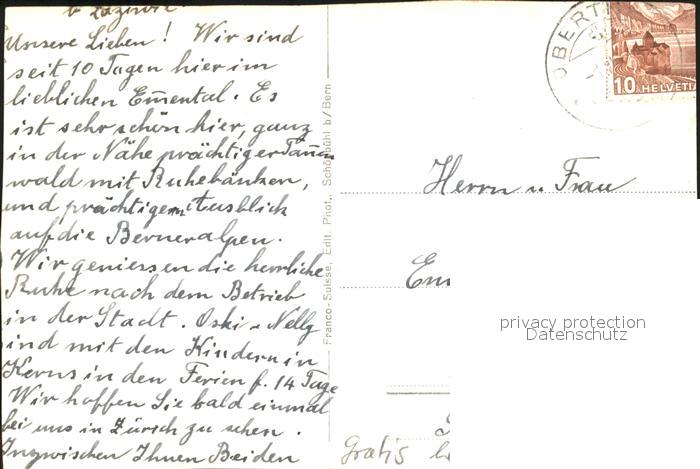 b Läziwil
Unsere Lieben! Wir sind
seit 10 Tagen hier im
lieblichen Em̅ental. Es
ist sehr schön hier, ganz
in der Nähe prächtiger Tan̅en
wald mit Ruhebänken,
und prächtigem Ausblick
auf die Berneralpen.
Wir geniessen die herrliche
Ruhe nach dem Betrieb
in der Stadt. Oski u Nelly
sind mit den Kindern in
Kerns in den Ferien f. 14 Tage
Wir hoffen Sie bald einmal
bei uns in Zürich zu sehen.
Inzwischen Ihnen Beiden
Franco-Suisse, Edit. Phot., Schönbühl b/Bern
OBERT
10 HELVETIA
Herrn u Frau
Em
privacy protection
Datenschutz
Gratis